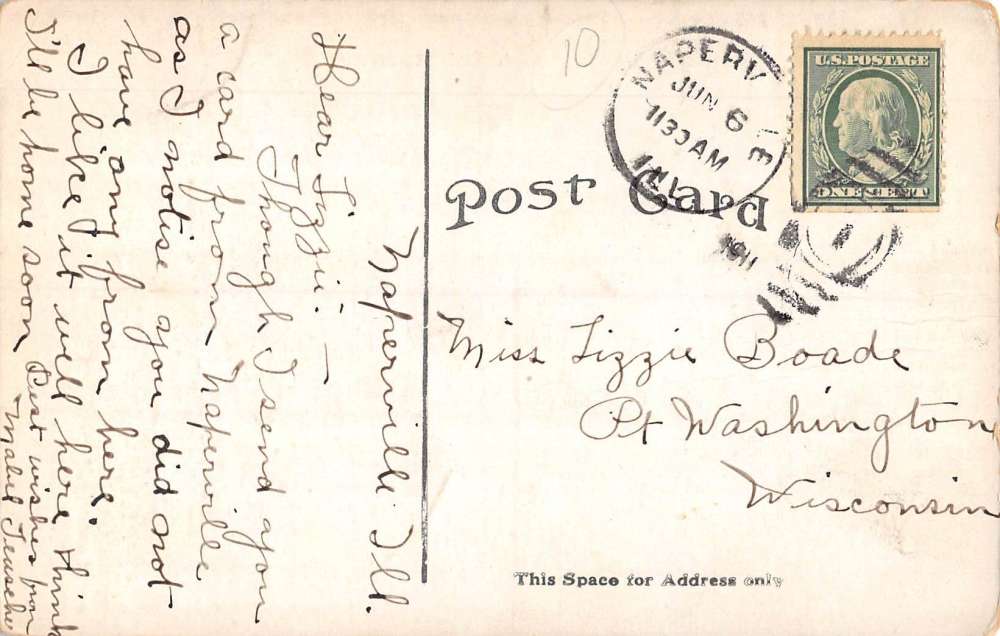 Naperville Ill.
Dear Lizzie: —
Though I send you
a card from Naperville
as I notise you did not
have any from here.
I like it well here think
I'll be home soon Best wishes from
Mabel
10
NAPERV LE
JUN 6
1130 AM
ILL.
1911
U.S. POSTAGE
ONE CENT
1
Post Card
Miss Lizzie Boade
Pt Washington
Wisconsin
This Space for Address only